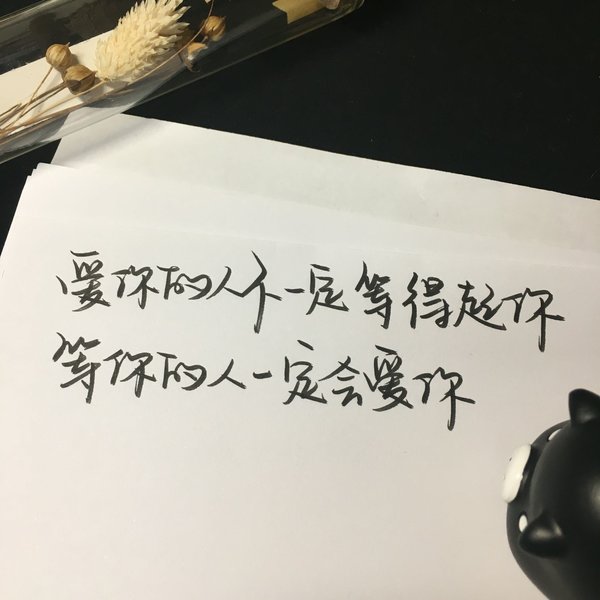 爱你的人不一定等得起你
等你的人一定会爱你